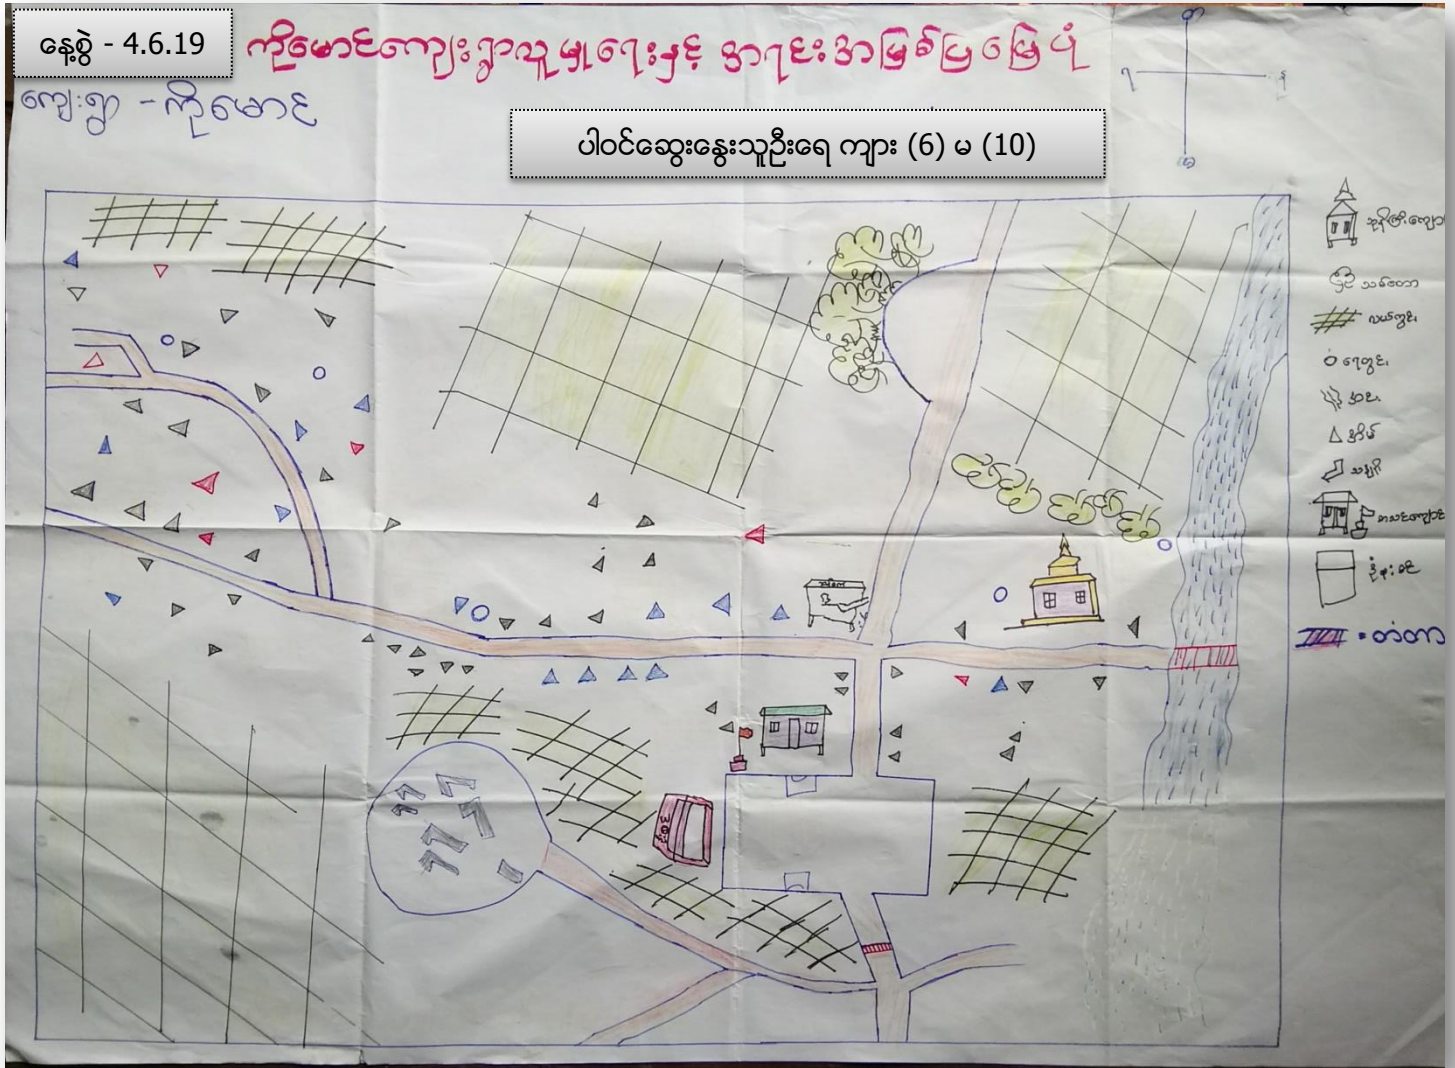 နေ့စွဲ - 4.6.19
ကိုမောင်ကျေးရွာလူမှုရေးနှင့် အရင်းအမြစ်ပြမြေပုံ
ကျေးရွာ - ကိုမောင်
ပါဝင်ဆွေးနွေးသူဦးရေ ကျား (6) မ (10)
တ
ရ
န
မ
ဘုန်းကြီးကျောင်း
သစ်တော
လယ်ကွင်း
ရေတွင်း
အင်း
အိမ်
သင်္ချိုင်း
စာသင်ကျောင်း
= တံတား